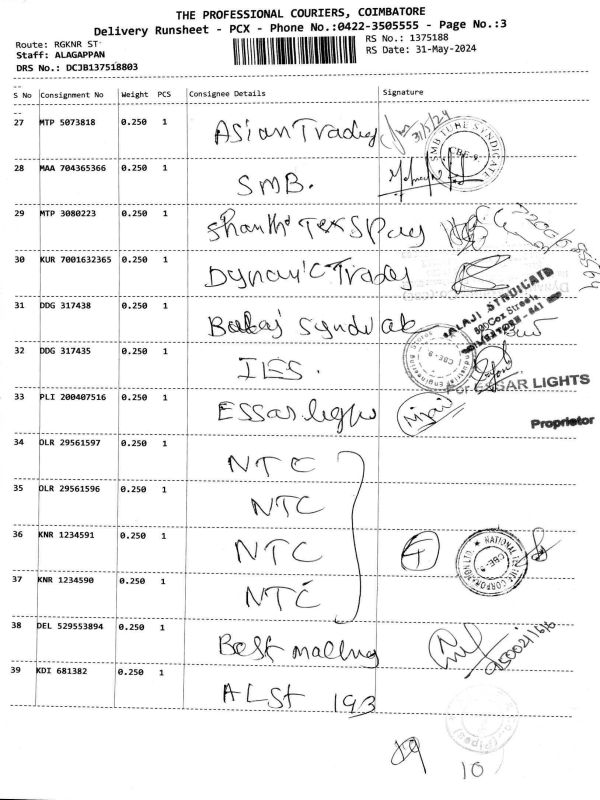 THE PROFESSIONAL COURIERS, COIMBATORE
Delivery Runsheet - PCX - Phone No.:0422-3505555 - Page No.:3
Route: RGKNR ST
RS No.: 1375188
Staff: ALAGAPPAN
RS Date: 31-May-2024
DRS No.: DCJB137518803
S No Consignment No Weight PCS Consignee Details Signature
27 MTP 5073818 0.250 1 Asian Trading 31/5/24
SMB TUBE SYNDICATE CBE-9
28 MAA 704365366 0.250 1 SMB.
29 MTP 3080223 0.250 1 Shanthi Tex Spay
30 KUR 7001632365 0.250 1 Dynamic Trades
31 DDG 317438 0.250 1 Balaji Syndicate
BALAJI SYNDICATE
COIMBATORE - 641
32 DDG 317435 0.250 1 IES.
CBE-9
For ESSAR LIGHTS
33 PLI 200407516 0.250 1 Essar lights
Proprietor
34 OLR 29561597 0.250 1 NTC
35 OLR 29561596 0.250 1 NTC
36 KNR 1234591 0.250 1 NTC
NATIONAL CORPORATION CBE-9
37 KNR 1234590 0.250 1 NTC
38 DEL 529553894 0.250 1 Best malling
39 KDI 681382 0.250 1 ALSt 193
10